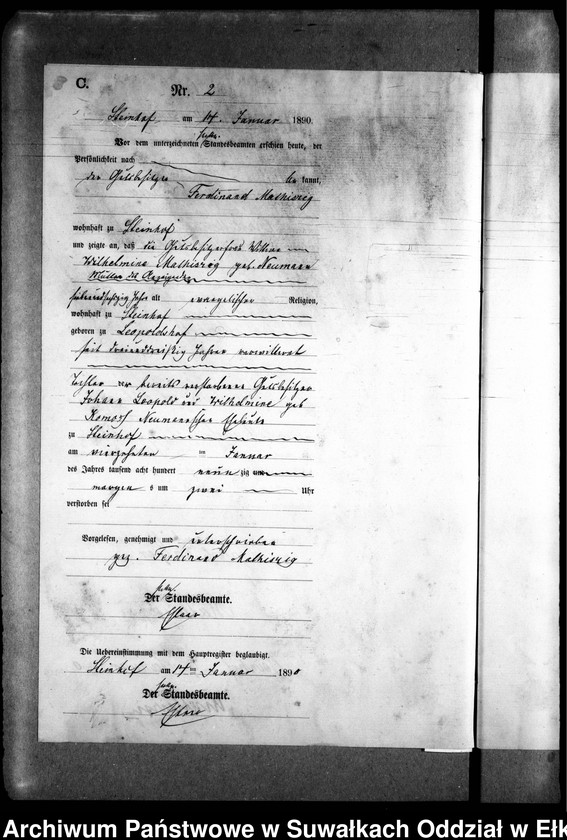 C.
Nr. 2
Steinhof am 14. Januar 1890
Vor dem unterzeichneten Standesbeamten erschien heute, der
Persönlichkeit nach
der Gutsbesitzer kannt,
Ferdinand Mathiszig
wohnhaft zu Steinhof
und zeigte an, daß die Gutsbesitzerfrau Wittwe
Wilhelmine Mathiszig geb. Neumann
Mutter des Anzeigenden
Jahre alt evangelischer Religion,
wohnhaft zu Steinhof
geboren zu Leopoldshof
seit dreiunddreißig Jahren verwittwet
Tochter der bereits verstorbenen Gutsbesitzer
Johann Leopold und Wilhelmine geb
Neumannschen Eheleute
zu Steinhof
am vierzehnten Januar
des Jahres tausend acht hundert neunzig
morgens um zwei Uhr
verstorben sei
Vorgelesen, genehmigt und unterschrieben
gez. Ferdinand Mathiszig
Der Standesbeamte.
Die Uebereinstimmung mit dem Hauptregister beglaubigt.
Steinhof am 14ten Januar 1890
Der Standesbeamte.
Archiwum Państwowe w Suwałkach Oddział w Ełk